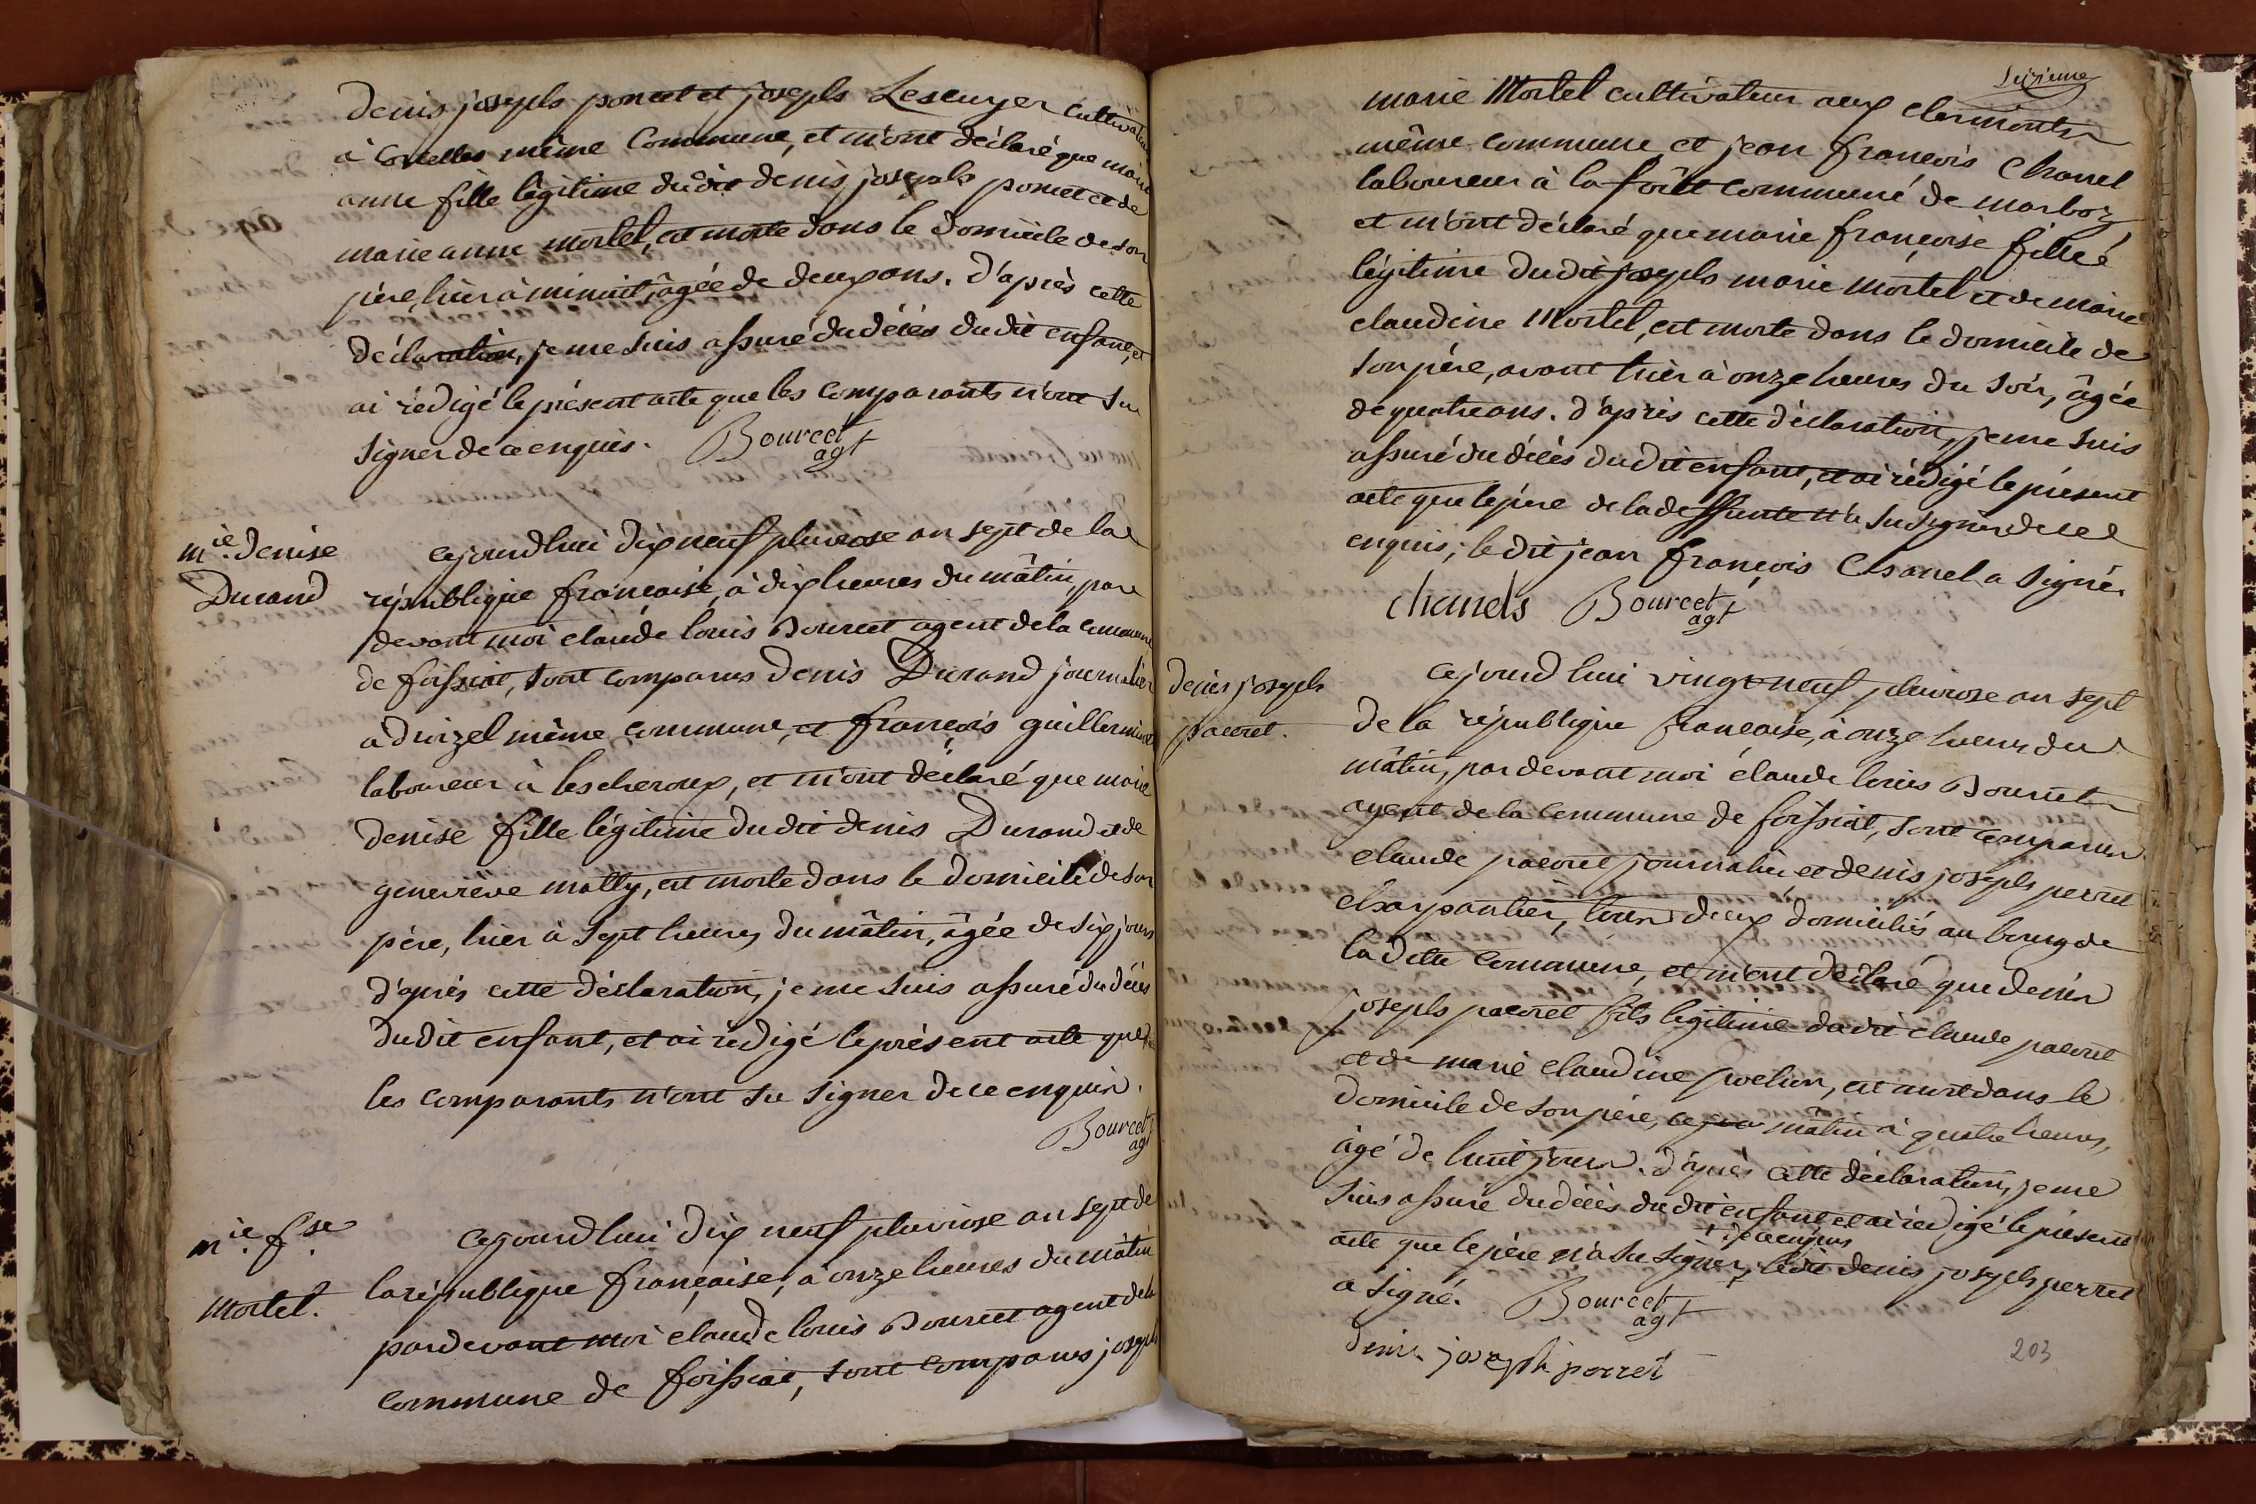 Denis joseph poncet et joseph Lescuyer cultivateur
à Corcelles même Commune, et m'ont déclaré que marie
anne fille légitime du dit denis joseph poncet et de
marie anne mortel, est morte dans le domicile de son
père, hier à minuit, âgée de deux ans. D'après cette
déclaration, je me suis assuré du décès du dit enfant, et
ai rédigé le présent acte que les comparants n'ont su
signer de ce enquis. Bourcet
agt
mie. denise
Durand
cejourdhui dix neuf pluviose an sept de la
république françoise, à dix heures du mâtin, par
devant moi claude louis Bourcet agent de la commune
de foissiat, sont comparus Denis Durand journalier
à Duizel même commune, et françois guillermin
laboureur à lescheroux, et m'ont déclaré que marie
denise fille légitime du dit denis Durand et de
geneviève matty, est morte dans le domicile de son
père, hier à sept heures du mâtin, âgée de six jours
d'après cette déclaration, je me suis assuré du décès
du dit enfant, et ai rédigé le présent acte que
les comparants n'ont su signer de ce enquis.
Bourcet
agt
mie. fse.
Mortel.
cejourdhui dix neuf pluviose an sept de
la république françoise, à onze heures du mâtin
pardevant moi claude louis Bourcet agent de la
commune de foissiat, sont comparus joseph
Seizieme
marie Mortel cultivateur aux clermonts
même commune et jean françois Chanel
laboureur à la forêt commune de marboz
et m'ont déclaré que marie françoise fille
légitime du dit joseph marie mortel et de marie
claudine Mortel, est morte dans le domicile de
son père, avant hier à onze heures du soir, âgée
de quatre ans. d'après cette déclaration, je me suis
assuré du décès du dit enfant, et ai rédigé le présent
acte que le père de la deffunte n'a su signer de ce
enquis; le dit jean françois Chanel a signé.
chanels Bourcet
agt
denis joseph
pacoret.
cejourdhui vingt neuf pluviose an sept
de la république françoise, à onze heures du
mâtin, par devant moi claude louis Bourcet
agent de la commune de foissiat, sont comparus
claude pacoret journalier et denis joseph perret
charpantier, tous deux domiciliés au bourg de
la dite commune, et m'ont déclaré que denis
joseph pacoret fils légitime du dit claude pacoret
et de marie claudine poelion, est mort dans le
domicile de son père, ce mâtin à quatre heures,
âgé de huit jours. D'après cette déclaration, je me
suis assuré du décès du dit enfant et ai rédigé le présent
+ de ce enquis
acte que le père n'a su signer, + le dit denis joseph perret
a signé. Bourcet
agt
denis joseph perret
203